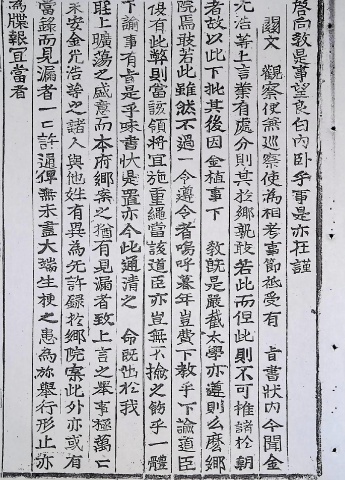 啓向教是事望良白內卧乎事是亦在謹
關文 觀察使無巡察使爲相考事節祗受有 旨書狀內今聞金
允浩等上言業有處分則其於鄉毅敢若此而但此則不可推諸於朝
者故以此下批其後因金植事下 教旣是嚴截太學亦遵則么麽鄉
院焉敢若此雖然不過一令遵令者嗚呼暮年豈費下教乎下諭道臣
復有此弊則當該領將宜施重繩當該道臣亦豈無不撿之飭乎一體
下諭事有旨是乎味書狀是置亦今此通清之 命旣出於我
聖上曠蕩之盛意而本府鄉案之猶有見漏者致上言之擧事極萬々
未安金允浩等之諸人與他姓有異爲先許錄於鄉院案此外亦或有
當錄而見漏者一々許通俾無未盡大端生梗之患爲旀擧行形止亦
爲牒報宜當者